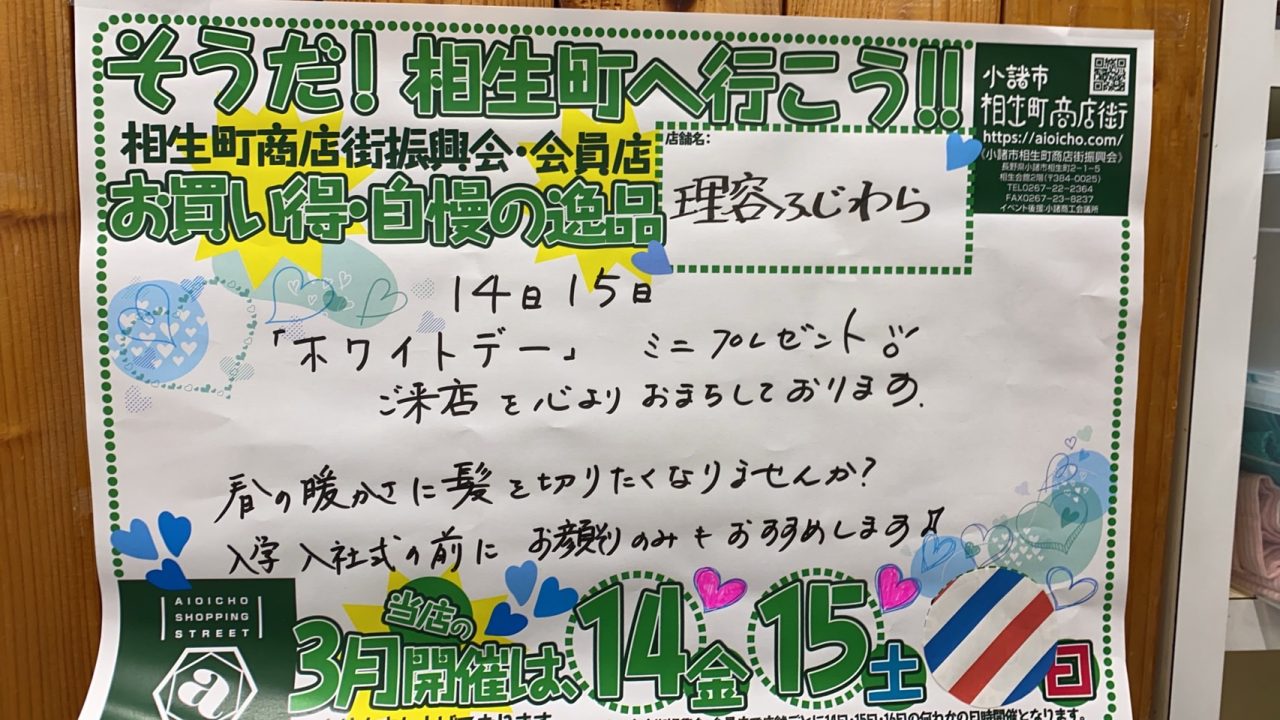 そうだ!相生町へ行こう!!
相生町商店街振興会・会員店
お買い得・自慢の逸品
店舗名:
理容ふじわら
小諸市
相生町商店街
https://aioicho.com/
《小諸市相生町商店街振興会》
長野県小諸市相生町2-1-5
相生会館2階(〒384-0025)
TEL0267-22-2364
FAX0267-23-8237
イベント後援:小諸商工会議所
14日15日
「ホワイトデー」 ミニプレゼント!!
ご来店を心よりおまちしております.
春の暖かさに髪を切りたくなりませんか?
入学 入社式の前に お顔剃りのみもおすすめします♪
AIOICHO
SHOPPING
STREET
a
当店の
3月開催は、14金 15土 日
14日・15日・16日の何れかの日時開催となります。